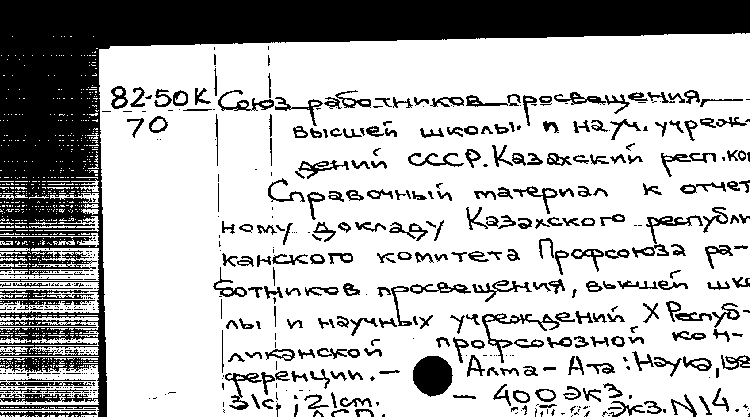 82-50К Союз работников просвещения,
70 высшей школы и науч. учреж-
дений СССР. Казахский респ.ко
Справочный материал к отчет
ному докладу Казахского республи
канского комитета Профсоюза ра-
ботников просвещения, высшей шко
лы и научных учреждений X Респуб-
ликанской профсоюзной кон-
ференции. — Алма-Ата: Наука, 198
31с.; 21см. — 400 экз.
Экз. N14.